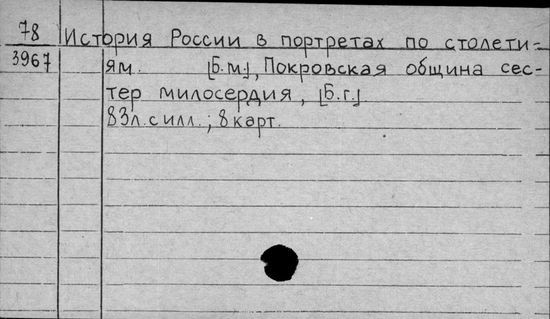 78 История России в портретах по столети-
3967 ям. [Б.м.], Покровская община сес-
тер милосердия, [Б.г.]
83л. с илл.; 8 карт.